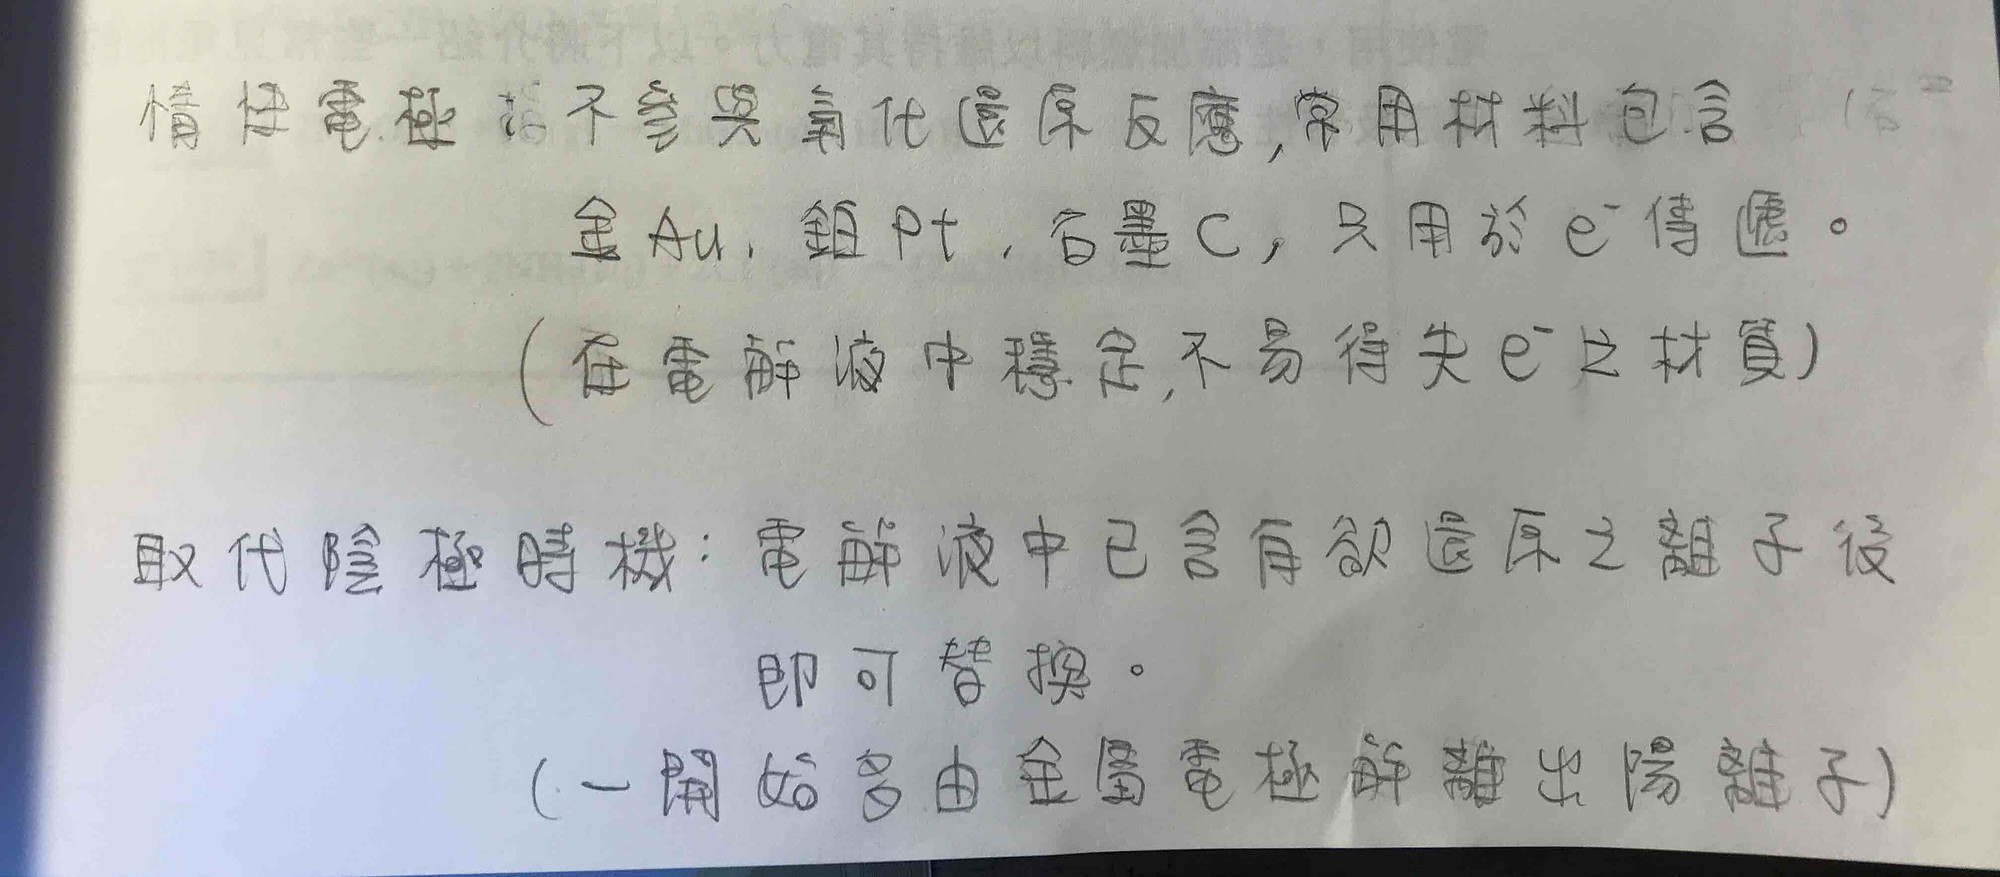 惰性電極指不參與氧化還原反應,常用材料包含
金Au、鉑Pt、石墨C,只用於e⁻傳遞。
(在電解液中穩定,不易得失e⁻之材質)
取代陰極時機:電解液中已含有欲還原之離子後
即可替換。
(一開始多由金屬電極解離出陽離子)